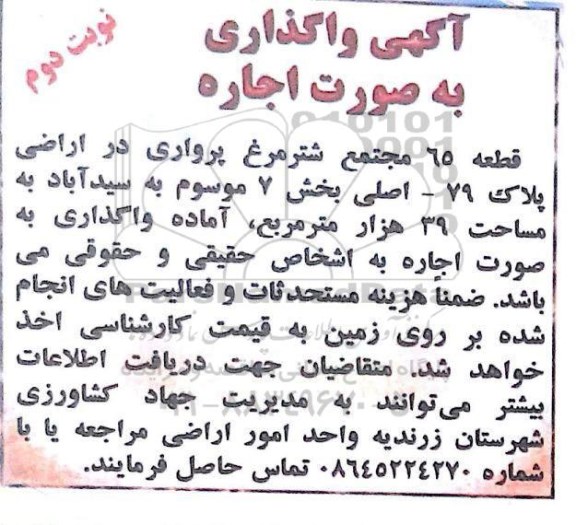 نوبت دوم
آگهی واگذاری
به صورت اجاره
قطعه ٦٥ مجتمع شترمرغ پرواری در اراضی
پلاک ٧٩ - اصلی بخش ٧ موسوم به سیدآباد به
مساحت ٣٩ هزار مترمربع، آماده واگذاری به
صورت اجاره به اشخاص حقیقی و حقوقی می
باشد. ضمناً هزینه مستحدثات و فعالیت های انجام
شده بر روی زمین به قیمت کارشناسی اخذ
خواهد شد. متقاضیان جهت دریافت اطلاعات
بیشتر می‌توانند به مدیریت جهاد کشاورزی
شهرستان زرندیه واحد امور اراضی مراجعه یا با
شماره ٠٨٦٤٥٢٢٤٢٧٠ تماس حاصل فرمایند.